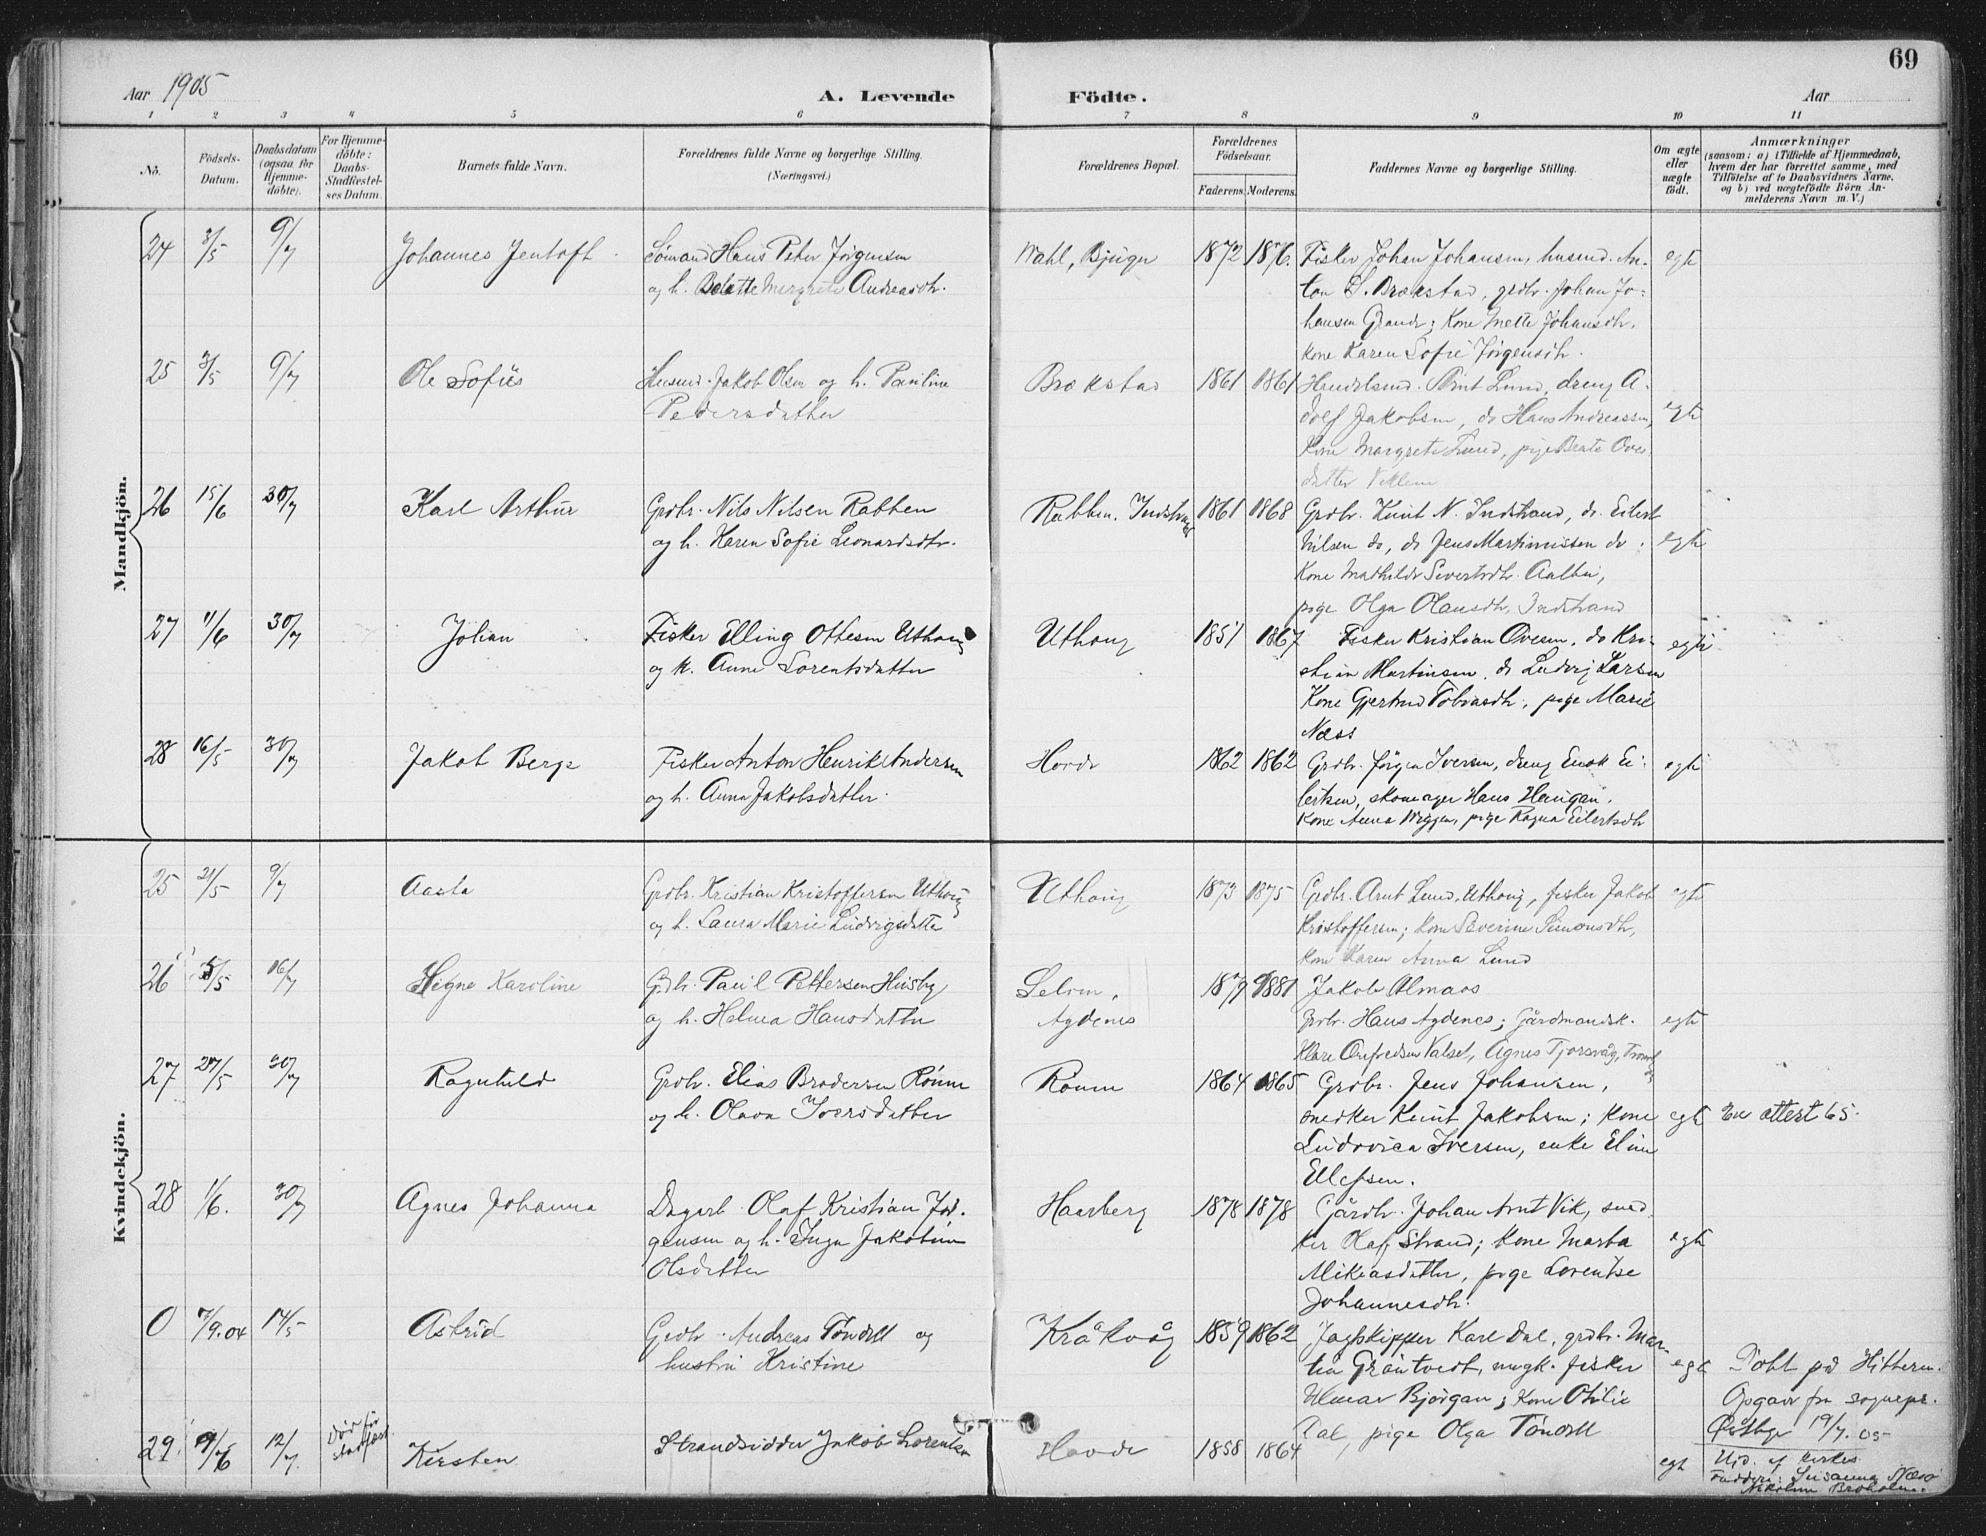 69
Aar 1905
A. Levende Födte.
Aar
1 2 3 4 5 6 7 8 9 10 11
No.
Födsels-Datum.
Daabsdatum (ogsaa for Hjemmedöbte).
For Hjemmedöbte: Daabs-Stadfæstelses Datum.
Barnets fulde Navn.
Forældrenes fulde Navne og borgerlige Stilling. (Næringsvei.)
Forældrenes Bopæl.
Forældrenes Födselsaar.
Faderens. Moderens.
Faddernes Navne og borgerlige Stilling.
Om ægte eller uægte födt.
Anmærkninger
(saasom: a) i Tilfælde af Hjemmedaab, hvem der har forrettet samme, med Tilföielse af to Daabsvidners Navne, og b) ved uægtefödte Börn Anmelderens Navn m. V.)
Mandkjön.
24 3/5 9/7 Johannes Jentoft Sømand Hans Peter Jørgensen Wahl, Bjugn 1872 1876 Fisker Johan Johansen, husmd. An- egte
og h. Margrete Andreasdtr. ton S. Brækstad, grdbr. Johan Jo-
hansen Grande; Kone Mette Johansdtr.
kone Karen Sofie Jørgensdtr.
25 3/5 9/7 Ole Sofus Husmd. Jakob Olsen og h. Pauline Brækstad 1861 1861 Handelsmd. Arnt Lund, dreng A-
Pedersdatter dolf Jakobsen, do Hans Andreassen, egte
Kone Margrete Lund, pige Beate Oves-
datter Viklem
26 15/6 30/7 Karl Arthur Grdbr. Nils Nilsen Rabben Rabben, Indstrand 1861 1868 Grdbr. Knut N. Indstrand, do. Eilert
og h. Karen Sofie Leonardsdtr. Nilsen do, do Jens Martinussen do. egte
Kone Mathilde Sivertsdtr.
pige Olga Olausdtr. Indstrand
27 11/6 30/7 Johan Fisker Elling Ottesen Uthaug Uthaug 1851 1867 Fisker Kristian Ovesen, do Kri- egte
og h. Anne Lorentsdatter stian Martinsen, do Ludvig Larsen
Kone Gjertrud Tobiasdtr., pige Marie
Næss
28 16/5 30/7 Jakob Berge Fisker Anton Henrik Andersen Hovde 1862 1862 Grdbr. Jørgen Iversen, dreng Enok Ei- egte
og h. Anna Jakobsdatter. lertsen, skomager Hans Haugan.
Kone Anna Wiggen, pige Ragna Eilertsdtr
Kvindekjön.
25 21/5 9/7 Aasta Grdbr. Kristian Kristoffersen Uthaug Uthaug 1873 1875 Grdbr. Arnt Lund, Uthaug, fisker Jakob egte
og h. Laura Marie Ludvigsdatter Kristoffersen; kone Severine Simonsdtr,
kone Karen Anna Lund
26 5/5 16/7 Signe Karoline Grdbr. Paul Pettersen Husby Selven, 1879 1881 Jakob Almaas
og h. Helma Hansdatter Agdenes Grdbr. Hans Agdenes; Gårdmandsk. egte
Valset, Agnes Tjorsvåg,
27 24/5 30/7 Ragnhild Grdbr. Elias Brodersen Rønne Rønne 1864 1865 Grdbr. Jens Johansen,
og h. Olava Iversdatter snedker Knut Jakobsen; Kone egte attest 65.
Ludovica Iversen, enke Elen
Ellefsen.
28 1/6. 30/7 Agnes Johanna Dagarb. Olaf Kristian Jør- Haarberg 1878 1878 Gårdbr. Johan Arnt Vik, sned-
gensen og h. Inga Jakobine ker Olaf Strand; Kone Marta egte
Olsdatter Mikkasdatter, pige Lorentse
Johannesdtr.
0 7/9.04 14/5 Astrid Grdbr. Andreas Tøndell og Kråkvåg 1859 1862 Jagtskipper Karl Dal, grdbr. Mar-
hustru Kristine tin Grøntvedt, ungk. fisker egte Døbt på Hitteren.
Ulmar Bjørgan; Kone Othilie Opgave fra sognepr.
Dal, pige Olga Tøndell 19/7. 05
29 9/6 12/7 Død før stadfæst. Kirsten Strandsidder Jakob Lorentsen Hovde 1858 1864 egte Upd. af kirkes.
Faddere: Susanna Næss
Nikoline Broholm.